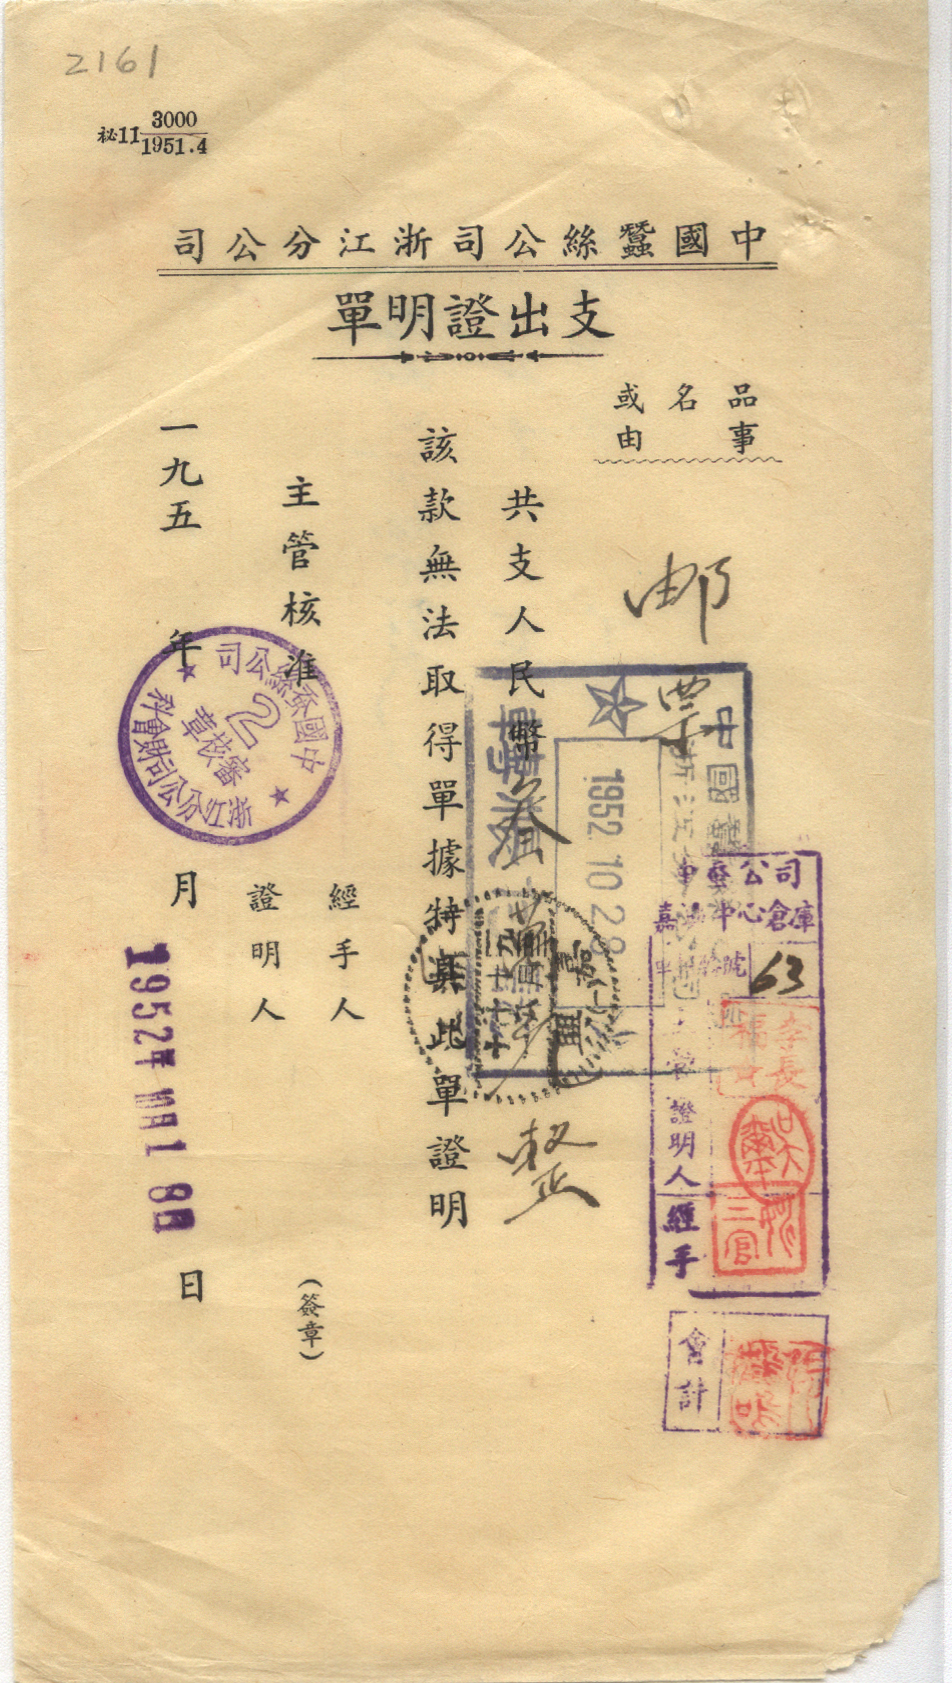 2161
祕11 3000
1951.4
中國蠶絲公司浙江分公司
支出證明單
品名或
事由
邮票
共支人民幣叁萬
整
該款無法取得單據特具此單證明
主管核准
經手人
證明人
(簽章)
一九五 年 月 日
中國蚕絲公司
浙江分公司財會科
2
審核章
1952
轉账
中國
1952 10 28
嘉興
中蚕公司
中心倉庫
號 63
李長福
證明人
吴
經手
三官
會計